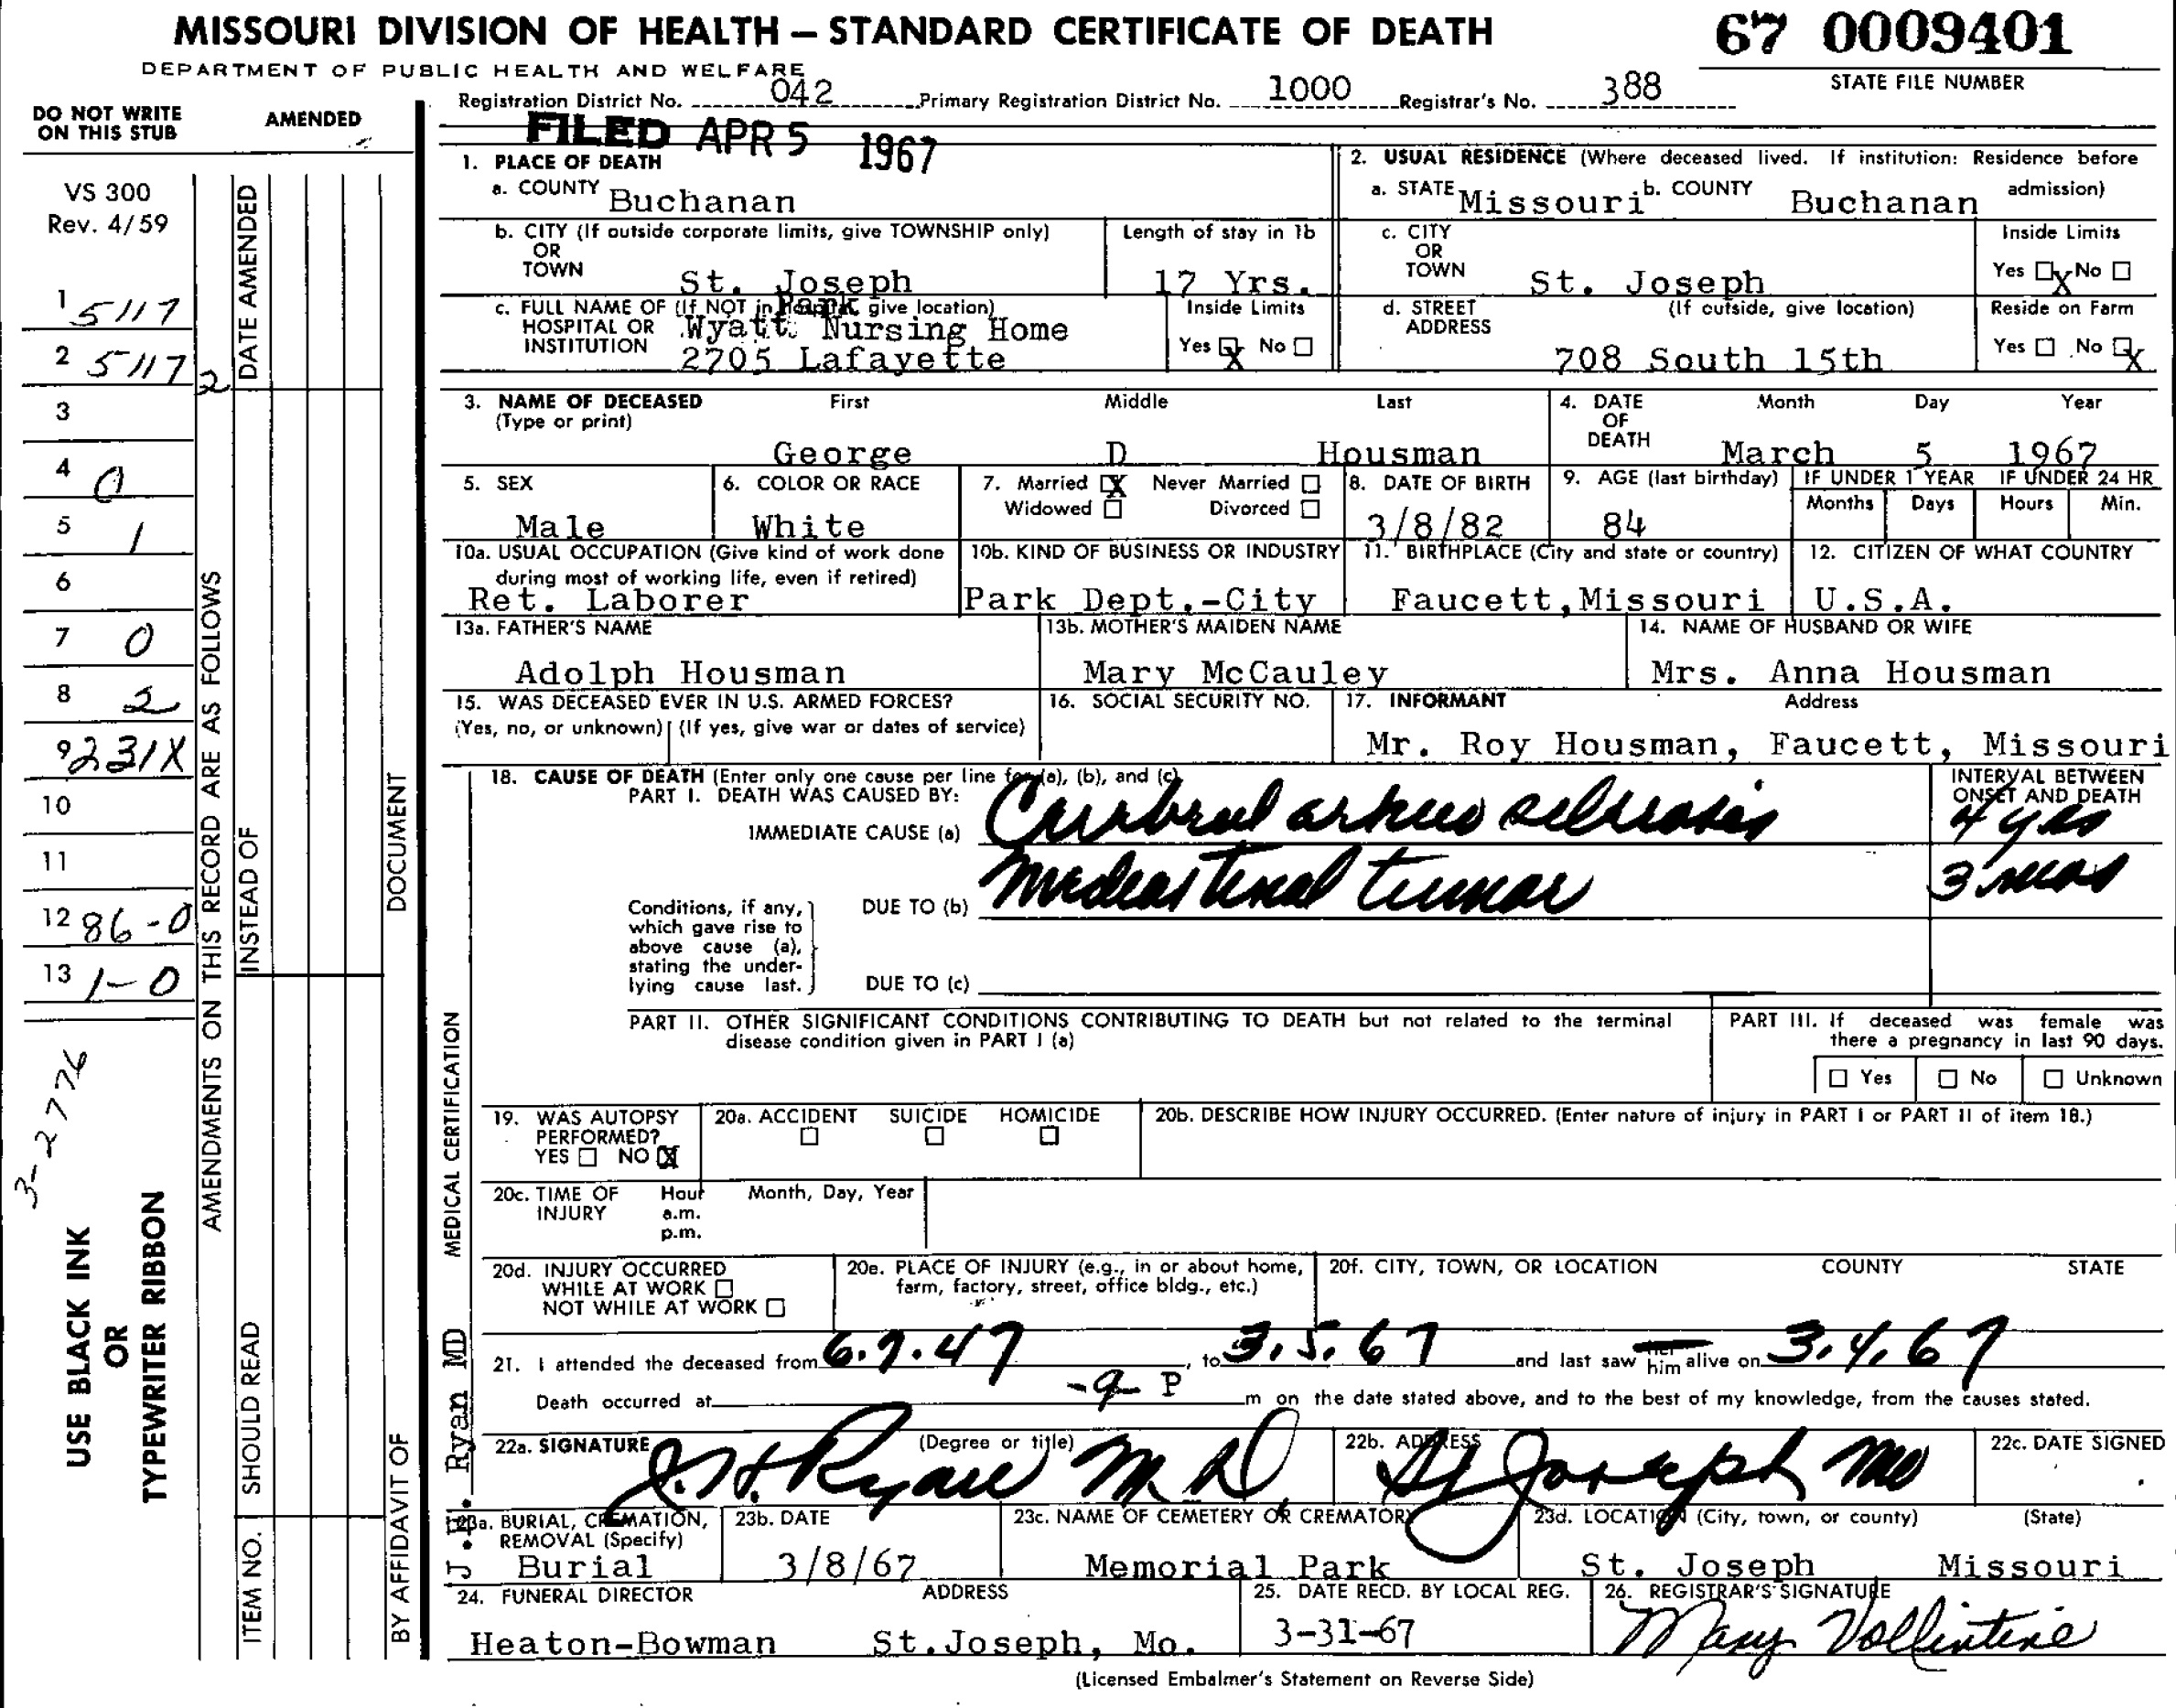 MISSOURI DIVISION OF HEALTH — STANDARD CERTIFICATE OF DEATH
67 0009401
DEPARTMENT OF PUBLIC HEALTH AND WELFARE
STATE FILE NUMBER
Registration District No. 042 Primary Registration District No. 1000 Registrar's No. 388
DO NOT WRITE ON THIS STUB
AMENDED
FILED APR 5 1967
VS 300
Rev. 4/59
1 5117
2 5117 2
3
4 0
5 1
6
7 0
8 2
9 231X
10
11
12 86-0
13 1-0
3-2776
USE BLACK INK
OR
TYPEWRITER RIBBON
AMENDMENTS ON THIS RECORD ARE AS FOLLOWS
DATE AMENDED
INSTEAD OF
DOCUMENT
SHOULD READ
ITEM NO.
BY AFFIDAVIT OF
1. PLACE OF DEATH
a. COUNTY Buchanan
2. USUAL RESIDENCE (Where deceased lived. If institution: Residence before admission)
a. STATE Missouri b. COUNTY Buchanan
b. CITY (If outside corporate limits, give TOWNSHIP only)
OR
TOWN St. Joseph
Length of stay in 1b
17 Yrs.
c. CITY
OR
TOWN St. Joseph
Inside Limits
Yes X No
c. FULL NAME OF (If NOT in hospital, give location)
HOSPITAL OR
INSTITUTION
Park
Wyatt Nursing Home
2705 Lafayette
Inside Limits
Yes X No
d. STREET
ADDRESS
(If outside, give location)
708 South 15th
Reside on Farm
Yes No X
3. NAME OF DECEASED
(Type or print)
First Middle Last
George D Housman
4. DATE
OF
DEATH
Month Day Year
March 5 1967
5. SEX
Male
6. COLOR OR RACE
White
7. Married X Never Married
Widowed Divorced
8. DATE OF BIRTH
3/8/82
9. AGE (last birthday)
84
IF UNDER 1 YEAR
Months Days
IF UNDER 24 HR
Hours Min.
10a. USUAL OCCUPATION (Give kind of work done
during most of working life, even if retired)
Ret. Laborer
10b. KIND OF BUSINESS OR INDUSTRY
Park Dept.-City
11. BIRTHPLACE (City and state or country)
Faucett, Missouri
12. CITIZEN OF WHAT COUNTRY
U.S.A.
13a. FATHER'S NAME
Adolph Housman
13b. MOTHER'S MAIDEN NAME
Mary McCauley
14. NAME OF HUSBAND OR WIFE
Mrs. Anna Housman
15. WAS DECEASED EVER IN U.S. ARMED FORCES?
(Yes, no, or unknown) (If yes, give war or dates of service)
16. SOCIAL SECURITY NO.
17. INFORMANT Address
Mr. Roy Housman, Faucett, Missouri
MEDICAL CERTIFICATION
18. CAUSE OF DEATH (Enter only one cause per line for (a), (b), and (c)
PART I. DEATH WAS CAUSED BY:
IMMEDIATE CAUSE (a) Cerebral arterio sclerosis
INTERVAL BETWEEN
ONSET AND DEATH
4 yrs
Conditions, if any,
which gave rise to
above cause (a),
stating the under-
lying cause last.
DUE TO (b) Mediastinal tumor
3 mos
DUE TO (c)
PART II. OTHER SIGNIFICANT CONDITIONS CONTRIBUTING TO DEATH but not related to the terminal
disease condition given in PART I (a)
PART III. If deceased was female was
there a pregnancy in last 90 days.
Yes No Unknown
19. WAS AUTOPSY
PERFORMED?
YES NO X
20a. ACCIDENT SUICIDE HOMICIDE
20b. DESCRIBE HOW INJURY OCCURRED. (Enter nature of injury in PART I or PART II of item 18.)
20c. TIME OF
INJURY
Hour
a.m.
p.m.
Month, Day, Year
20d. INJURY OCCURRED
WHILE AT WORK
NOT WHILE AT WORK
20e. PLACE OF INJURY (e.g., in or about home,
farm, factory, street, office bldg., etc.)
20f. CITY, TOWN, OR LOCATION COUNTY STATE
21. I attended the deceased from 6.7.47, to 3.5.67 and last saw her him alive on 3.4.67
Death occurred at -9- P m on the date stated above, and to the best of my knowledge, from the causes stated.
J. H. Ryan MD
22a. SIGNATURE (Degree or title)
J. H. Ryan M.D.
22b. ADDRESS
St Joseph Mo
22c. DATE SIGNED
23a. BURIAL, CREMATION,
REMOVAL (Specify)
Burial
23b. DATE
3/8/67
23c. NAME OF CEMETERY OR CREMATORY
Memorial Park
23d. LOCATION (City, town, or county) (State)
St. Joseph Missouri
24. FUNERAL DIRECTOR ADDRESS
Heaton-Bowman St.Joseph, Mo.
25. DATE RECD. BY LOCAL REG.
3-31-67
26. REGISTRAR'S SIGNATURE
Mary Vollintine
(Licensed Embalmer's Statement on Reverse Side)